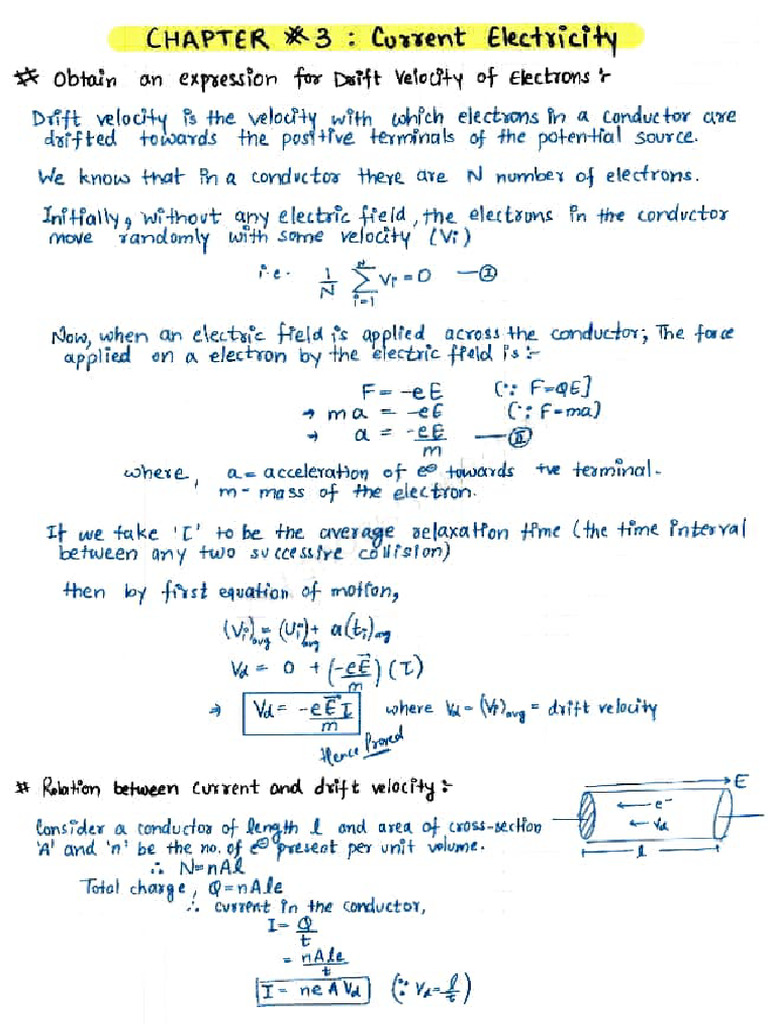 CHAPTER * 3 : Current Electricity
* Obtain an expression for Drift Velocity of Electrons :-
Drift velocity is the velocity with which electrons in a conductor are
drifted towards the positive terminals of the potential source.
We know that in a conductor there are N number of electrons.
Initially, without any electric field, the electrons in the conductor
move randomly with some velocity (Vi)
i.e. 1/N Σ_{i=1}^{N} Vi = 0 — Ⓘ
Now, when an electric field is applied across the conductor, The force
applied on a electron by the electric field is :-
F = -eE (∵ F=QE]
→ ma = -eE (∵ F=ma)
→ a = -eE/m — ⓘⓘ
where, a = acceleration of e⊖ towards +ve terminal.
m - mass of the electron.
If we take 'τ' to be the average relaxation time (the time interval
between any two successive collision)
then by first equation of motion,
(Vi)avg = (Ui)avg + a(ti)avg
Vd = 0 + (-eE⃗/m) (τ)
→ Vd = -eE⃗τ/m where Vd = (Vi)avg = drift velocity
Hence Proved
* Relation between current and drift velocity :-
E
Consider a conductor of length l and area of cross-section
'A' and 'n' be the no. of e⊖ present per unit volume.
e⁻
Vd
l
∴ N=nAl
Total charge, Q=nAle
∴ current in the conductor,
I = Q/t
= nAle/t
I = neAVd (∵ Vd = l/t)